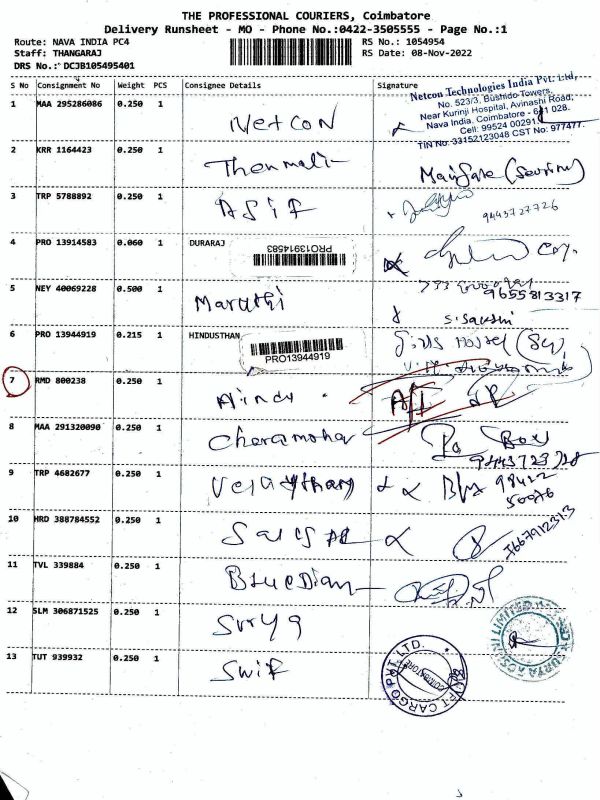 THE PROFESSIONAL COURIERS, Coimbatore
Delivery Runsheet - MO - Phone No.:0422-3505555 - Page No.:1
Route: NAVA INDIA PC4
RS No.: 1054954
Staff: THANGARAJ
RS Date: 08-Nov-2022
DRS No.: DCJB105495401
S No Consignment No Weight PCS Consignee Details Signature
1 MAA 295286086 0.250 1 Netcon
Netcon Technologies India Pvt. Ltd,
No. 523/3, Bushido Towers,
Near Kurinji Hospital, Avinashi Road,
Nava India, Coimbatore - 641 028.
Cell: 99524 00291
TIN No: 33152123048 CST No: 977477
2 KRR 1164423 0.250 1
3 TRP 5788892 0.250 1 ASIF
9443727726
4 PRO 13914583 0.060 1 DURARAJ
PRO13914583
5 NEY 40069228 0.500 1 Maruthi
9655813317
S. Sakthi
6 PRO 13944919 0.215 1 HINDUSTHAN
PRO13944919
7 RMD 800238 0.250 1 Hindu
8 MAA 291320090 0.250 1
Box
9443723728
9 TRP 4682677 0.250 1
98422
50076
10 HRD 388784552 0.250 1
11 TVL 339884 0.250 1
12 SLM 306871525 0.250 1 Surya
13 TUT 939932 0.250 1 Swif